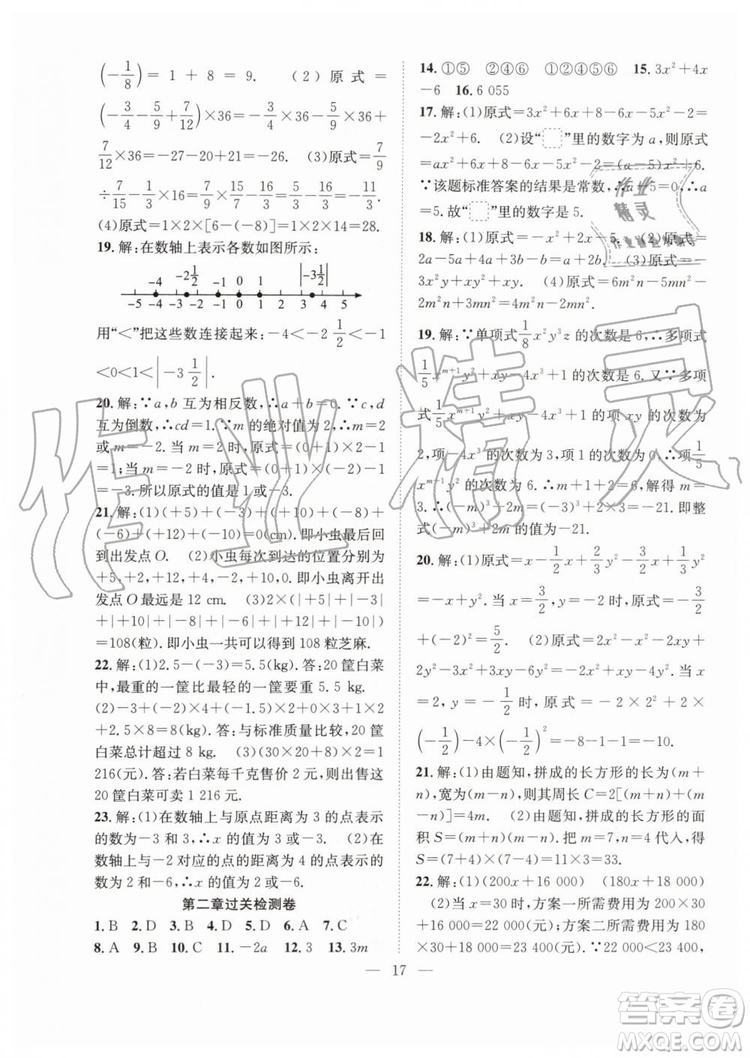 (-1/8)=1+8=9. (2)原式=
(-3/4-5/9+7/12)×36=-3/4×36-5/9×36+
7/12×36=-27-20+21=-26. (3)原式=7/9
÷7/15-1/3×16=7/9×15/7-16/3=5/3-16/3=-11/3.
(4)原式=1×2×[6-(-8)]=1×2×14=28.
19.解:在数轴上表示各数如图所示:
-4 -2 1/2 -1 0 1 |-3 1/2|
-5 -4 -3 -2 -1 0 1 2 3 4 5
用“<”把这些数连接起来:-4<-2 1/2<-1
<0<1<|-3 1/2|.
20.解:∵a,b互为相反数,∴a+b=0.∵c,d
互为倒数,∴cd=1.∵m的绝对值为2,∴m=2
或m=-2.当m=2时,原式=(0+1)×2-1=
2-1=1.当m=-2时,原式=(0+1)×(-2)-1
=-3.所以原式的值是1或-3.
21.解:(1)(+5)+(-3)+(+10)+(-8)+
(-6)+(+12)+(-10)=0(cm).即小虫最后回
到出发点O. (2)小虫每次到达的位置分别为
+5,+2,+12,+4,-2,+10,0.即小虫离开出
发点O最远是12 cm. (3)2×(|+5|+|-3|
+|+10|+|-8|+|-6|+|+12|+|-10|)
=108(粒).即小虫一共可以得108粒芝麻.
22.解:(1)2.5-(-3)=5.5(kg).答:20筐白菜
中,最重的一筐比最轻的一筐要重5.5 kg.
(2)-3×1+(-2)×4+(-1.5)×2+0×3+1×2
+2.5×8=8(kg).答:与标准质量比较,20筐
白菜总计超过8 kg. (3)(20×30+8)×2=1
216(元).答:若白菜每千克售价2元,则出售这
20筐白菜可卖1 216元.
23.解:(1)在数轴上与原点距离为3的点表示
的数为-3和3,∴x的值为-3和3. (2)在
数轴上与-2对应的点的距离为4的点表示的
数为2或-6,∴x的值为2或-6.
第二章过关检测卷
1.B 2.D 3.B 4.D 5.D 6.A 7.C
8.A 9.A 10.C 11.-2a 12.3 13.3m
14.①⑤ ②④⑥ ①②④⑤⑥ 15.3x²+4x
-6 16.6 055
17.解:(1)原式=3x²+6x+8-6x-5x²-2=
-2x²+6. (2)设“□”里的数字为a,则原式=
ax²+6x+8-6x-5x²-2=(a-5)x²+6.
∵该题标准答案的结果是常数,∴a-5=0.∴a
=5.故“□”里的数字是5.
18.解:(1)原式=-6x+5. (2)原式=2a-
5b-5a+4a+4b=a-b. (3)原式=a+5a-
3b-2a+4b=4a+b. (4)原式=6m²n-4m²+
2m²n+2m²=8m²n-2m².
19.解:∵单项式1/8x³y²z的次数是6,∴多项式
1/5x^{m+1}y²+xy²-4x³+1的次数是6.又∵多项
式1/5x^{m+1}y²+xy²-4x³+1的次数为
2,1,-4x³的次数为3,∴1/5x^{m+1}y²的次数为
6,∴m+1+2=6.∴m=3.∴(-m)³+2m=
(-3)³+2×3=-27+6=-21.即整
式(-m)³+2m的值为-21.
20.解:(1)原式=1/2x-2x+2/3y²-3/2x+1/3y²
=-3x+y².当x=3/2,y=-2时,原式=-3×3/2
+(-2)²=-1/2. (2)原式=2x²y+2xy-
2x²y-3xy-4x=-xy-4x.当
x=2,y=-1/2时,原式=-2×
(-1/2)-4×
21.解:(1)由题知,拼成的长方形的长为(m+
n),宽为(m-n),则周长C=2[(m+n)+(m-
n)]=4m. (2)由题知,拼成的长方形的面
积S=(m+n)(m-n).把m=7,n=4代入,得
S=(7+4)×(7-4)=11×3=33.
22.解:(1)(200x+16 000) (180x+18
000) (2)当x=30时,方案一所需费用为200
×30+16 000=22 000(元),方案二所需费用为
180×30+18 000=23 400(元).∵22 000<23 400,
17
作业精灵
答案圈
MXQE.COM